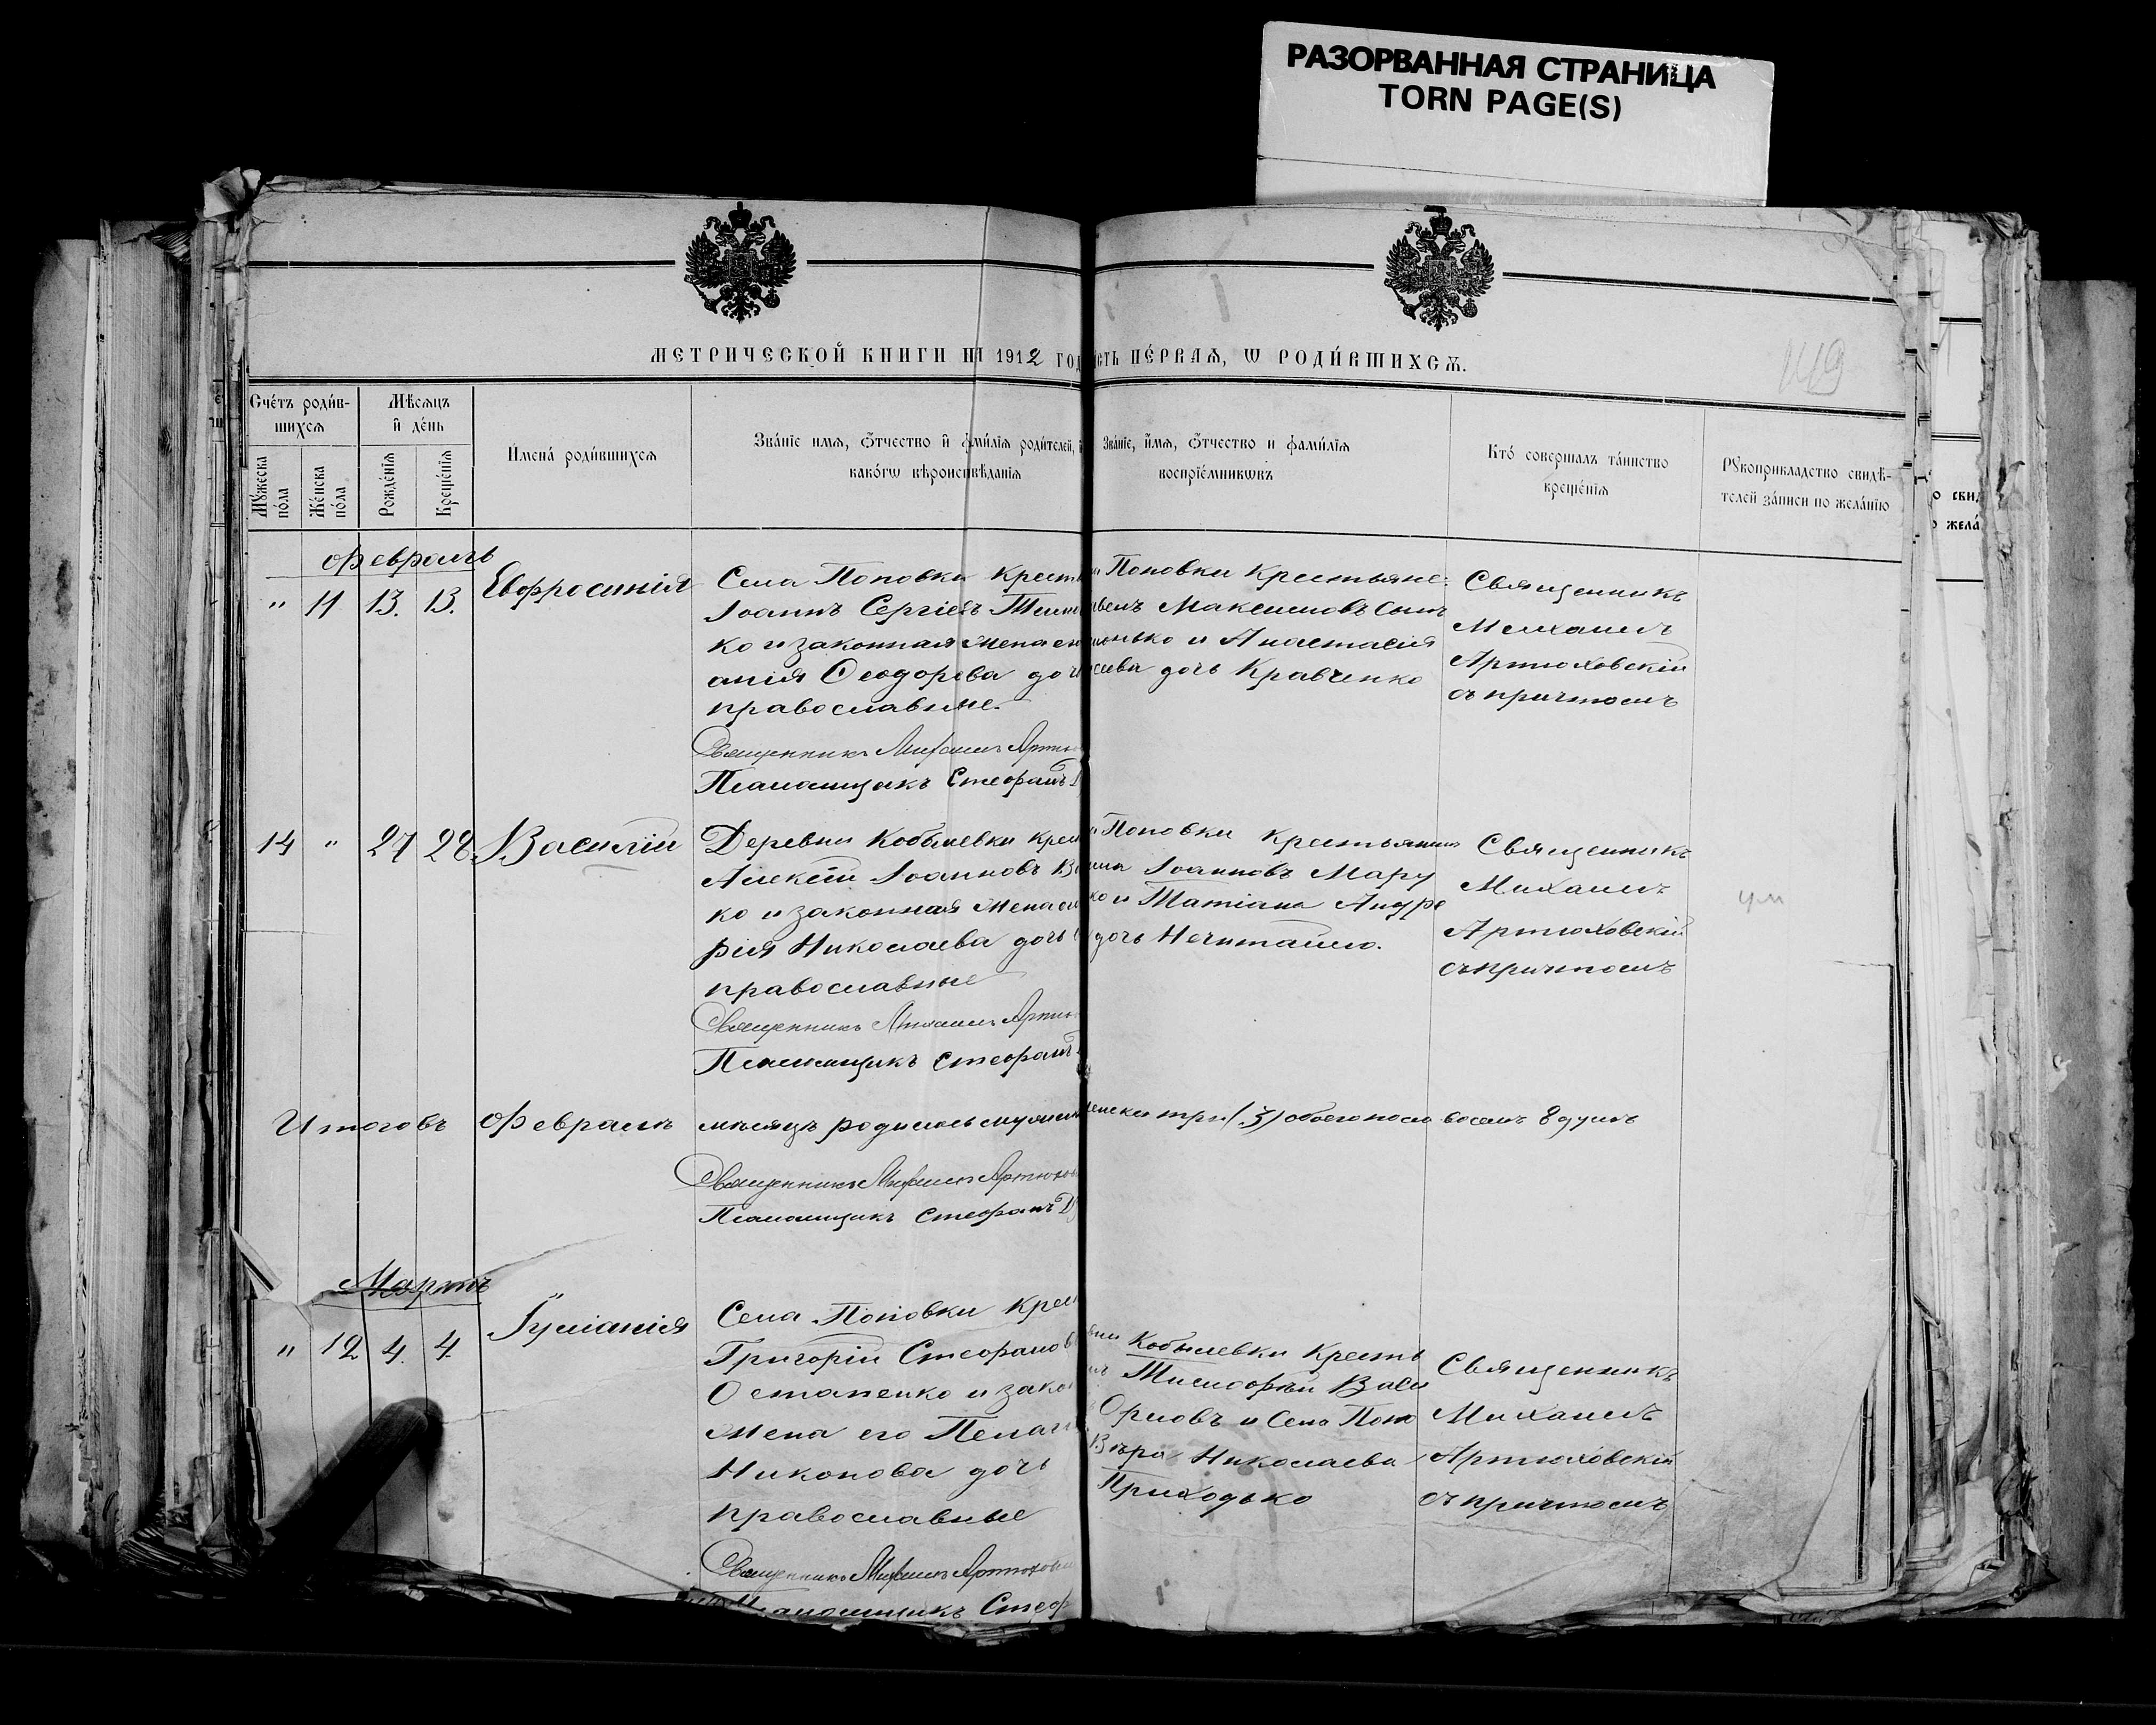 РАЗОРВАННАЯ СТРАНИЦА
TORN PAGE(S)
МЕТРИЧЕСКОЙ КНИГИ НА 1912 ГОД
СТЬ ПЕ́РВАѦ, Ѡ РОДИ́ВШИХСѦ.
149
Сче́тъ роди́в-
шихсѧ
Мꙋ́жеска
по́ла
Же́нска
по́ла
Мѣ́сѧцъ
и҆ де́нь
Рожде́нїѧ
Креще́нїѧ
Имена́ роди́вшихсѧ
Зва́нїе имѧ, ѻ҆́тчество и҆ фами́лїѧ роди́телей, и
како́гѡ вѣроисповѣ́данїѧ
Зва́нїе, и҆́мѧ, ѻ҆́тчество и фами́лїѧ
воспрїе́мникѡвъ
Кто́ соверша́лъ та́инство
креще́нїѧ
Рꙋкоприкладство свидѣ́-
телей за́писи по жела́нїю
Февраль
" 11 13. 13. Евфросинія
Села Поповки Крестья
Іоаннъ Сергіевъ Тимо
ко и законная жена е
анія Ѳеодорова дочь
православные.
Священникъ Михаилъ Артю
Псаломщикъ Стефанъ
Поповки Крестьяне:
Максимовъ Сынъ
и Анастасія
дочь Кравченко
Священникъ
Михаилъ
Артюховскій
съ причтомъ
14 " 27 28. Василій
Деревни Кобылевки Крест
Алексій Іоанновъ
ко и законная жена е
рія Николаева дочь
православные
Священникъ Михаилъ Артю
Псаломщикъ Стефанъ
Поповки Крестьянинъ
Іоанновъ Мару
ко и Татіана Андре
дочь Нечитайло.
Священникъ
Михаилъ
Артюховскій
съ причтомъ
ум
Итого въ Февралѣ мѣсяцѣ родилось мужеск
женска три (3) обоего пола восемь 8 душъ
Священникъ Михаилъ Артюхов
Псаломщикъ Стефанъ
Мартъ
" 12 4. 4. Іуліанія
Села Поповки Крест
Григорій Стефановъ
Остапенко и зако
жена его Пелаг
Никонова дочь
православные
Священникъ Михаилъ Артюховск
Псаломщикъ Стеф
Кобылевки Кресть
Тимофей Васи
Орловъ и Села Попо
Вѣра Николаева
Приходько
Священникъ
Михаилъ
Артюховскій
съ причтомъ